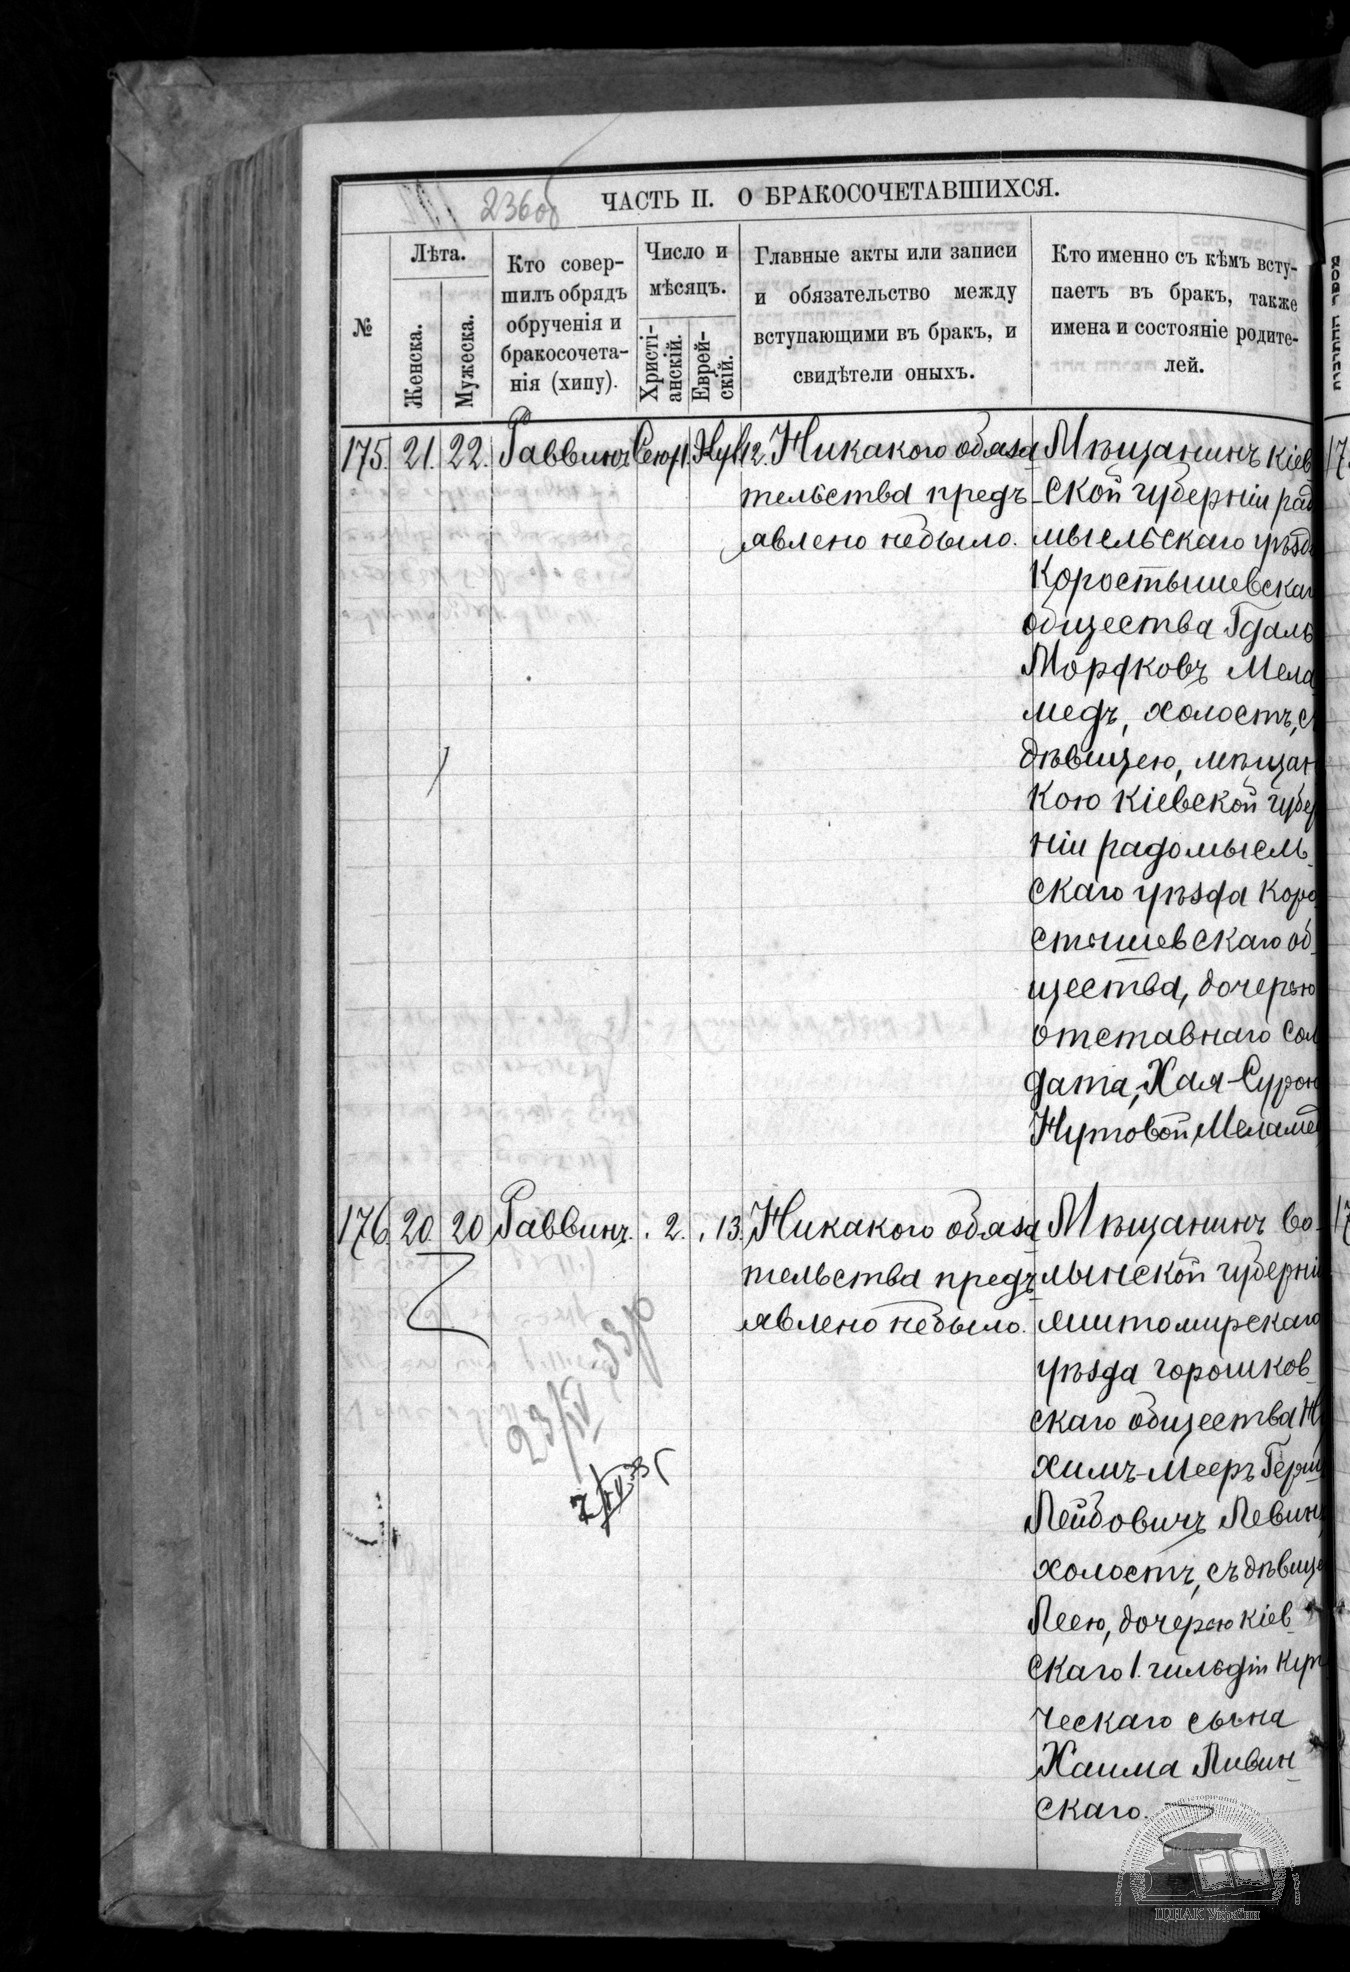 236об
ЧАСТЬ II. О БРАКОСОЧЕТАВШИХСЯ.
№
Лѣта.
Женска.
Мужеска.
Кто совер-
шилъ обрядъ
обрученія и
бракосочета-
нія (хипу).
Число и
мѣсяцъ.
Христі-
анскій.
Еврей-
скій.
Главные акты или записи
и обязательство между
вступающими въ бракъ, и
свидѣтели оныхъ.
Кто именно съ кѣмъ всту-
паетъ въ бракъ, также
имена и состояніе родите-
лей.
175. 21. 22. Раввинъ 12. Никакого обяза
тельства предъ-
явлено небыло.
Мѣщанинъ Кіев
ской губерніи рад
мысльскаго уѣзда
Коростышевскаг
общества Гдаль
Мордковъ Мела
медъ, холостъ, съ
дѣвицею, мѣщан
кою Кіевской губер
ніи радомысль-
скаго уѣзда Коро
стышевскаго об-
щества, дочерью
отставнаго сол
дата, Хая-Сурою
Нутовой Меламед
176. 20. 20. Раввинъ. 2. 13. Никакого обяза
тельства предъ-
явлено небыло.
Мѣщанинъ Во-
лынской губерніи
житомирскаго
уѣзда горошков-
скаго общества
химъ-Мееръ Герш
Лейбовичъ Левин
холостъ, съ дѣвице
Леею, дочерью Кіев-
скаго 1. гильдіи куп
ческаго сына
Хаима Ливин-
скаго.
23/IV
ЦДІАК України